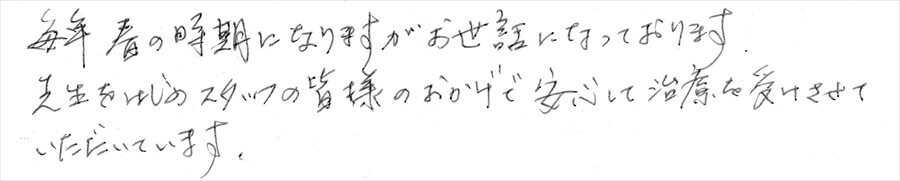 毎年春の時期になりますがお世話になっております.
先生をはじめスタッフの皆様のおかげで安心して治療を受けさせて
いただいています.